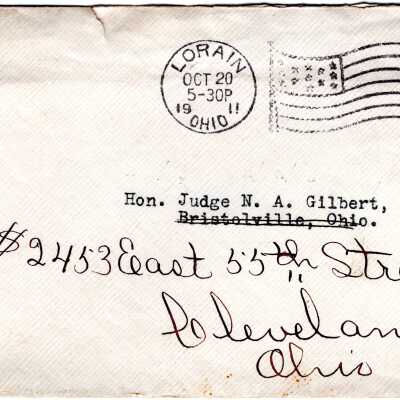 LORAIN
OCT 20
5-30P
19 11
OHIO
Hon. Judge N. A. Gilbert,
Bristolville, Ohio.
#2453 East 55th Stre
Clevelan
Ohio